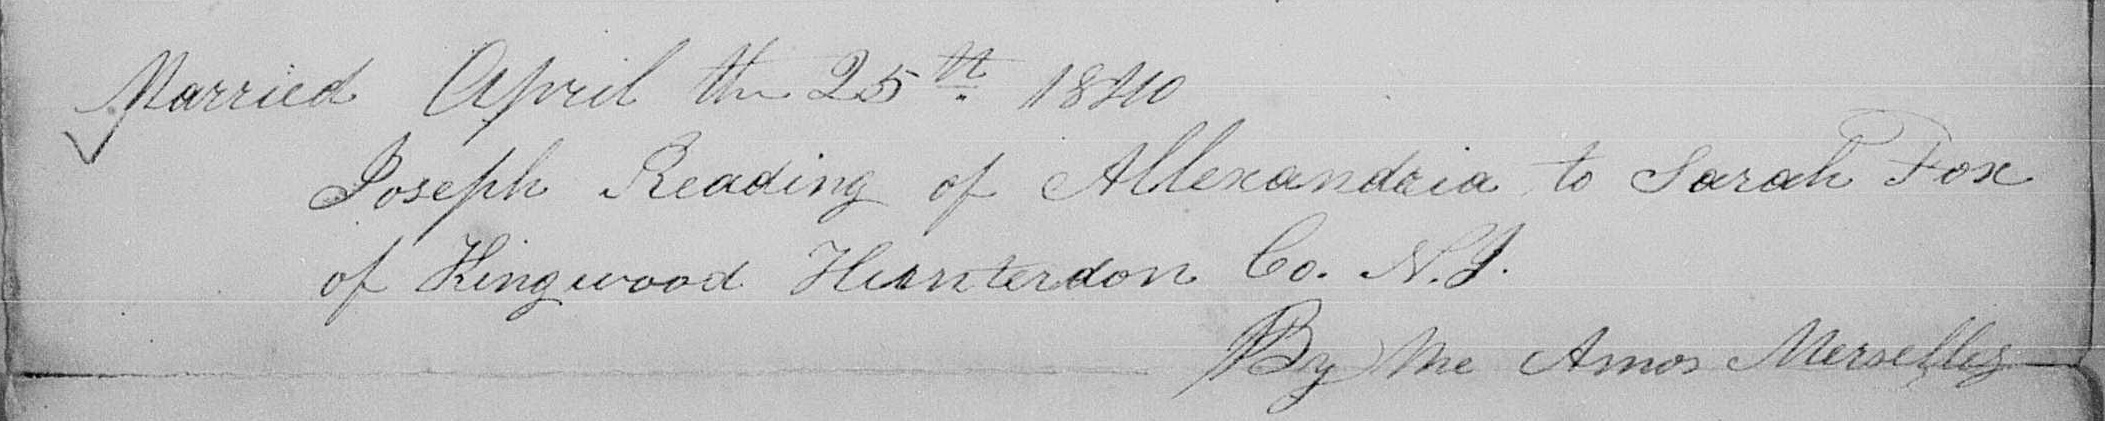 Married April the 25th 1840
Joseph Reading of Allexandria to Sarah Fox
of Kingwood Hunterdon Co. N.J.
By Me Amos Merselles